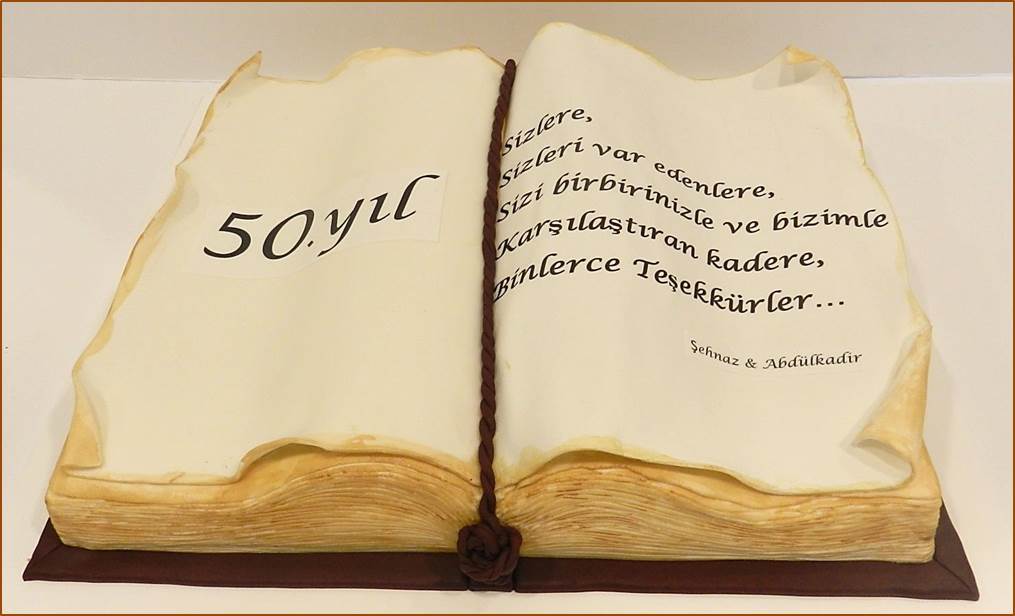 50.yıl
Sizlere,
Sizleri var edenlere,
Sizi birbirinizle ve bizimle
Karşılaştıran kadere,
Binlerce Teşekkürler...
Şehnaz & Abdülkadir